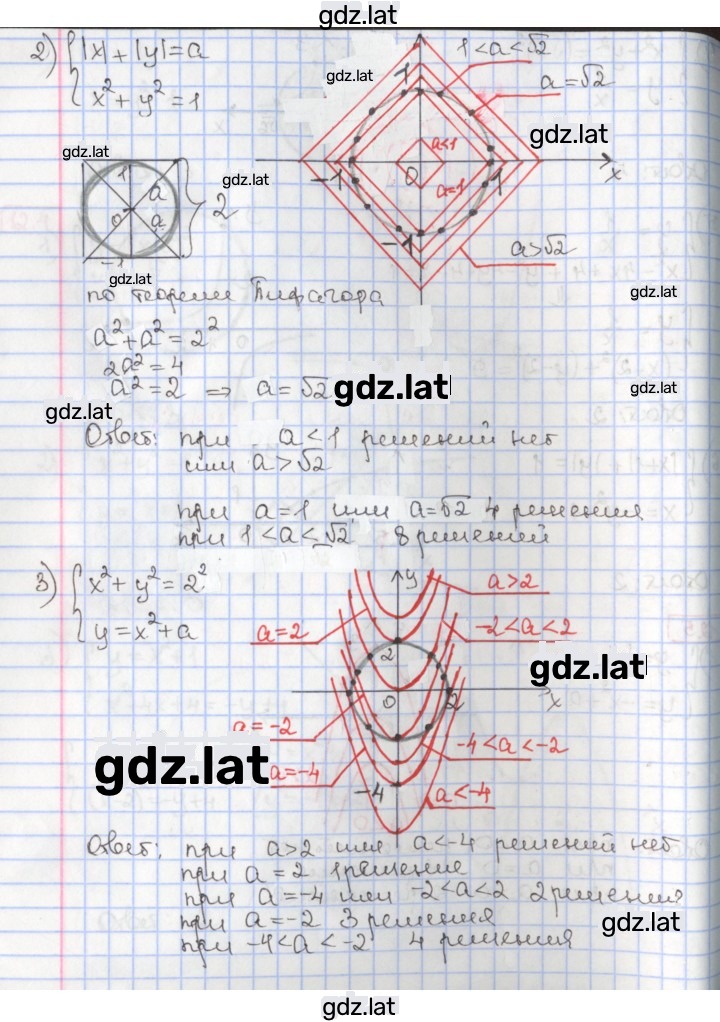 gdz.lat
2) { |x| + |y| = a
x² + y² = 1
1 < a < √2
a = √2
gdz.lat
gdz.lat
1
a<1
a=1
-1
0
1
x
-1
a>√2
gdz.lat
gdz.lat
1
a
0
a
-1
2
gdz.lat
gdz.lat
по теореме Пифагора
a² + a² = 2²
2a² = 4
a² = 2 ⇒ a = √2
gdz.lat
gdz.lat
gdz.lat
Ответ: при a < 1 решений нет
или a > √2
при a = 1 или a = √2 4 решения
при 1 < a < √2 8 решений
3) { x² + y² = 2²
y = x² + a
y
a>2
a=2
-2<a<2
2
gdz.lat
0
2
x
a=-2
-4<a<-2
gdz.lat
a=-4
-4
a<-4
Ответ: при a>2 или a<-4 решений нет
при a = 2 1 решение
при a = -4 или -2<a<2 2 решения
при a = -2 3 решения
gdz.lat
при -4<a<-2 4 решения
gdz.lat